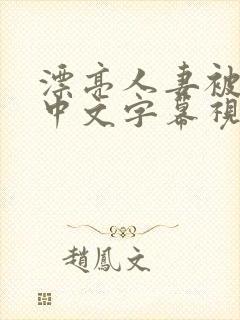 漂亮人妻被
中文字幕視
趙鳳文